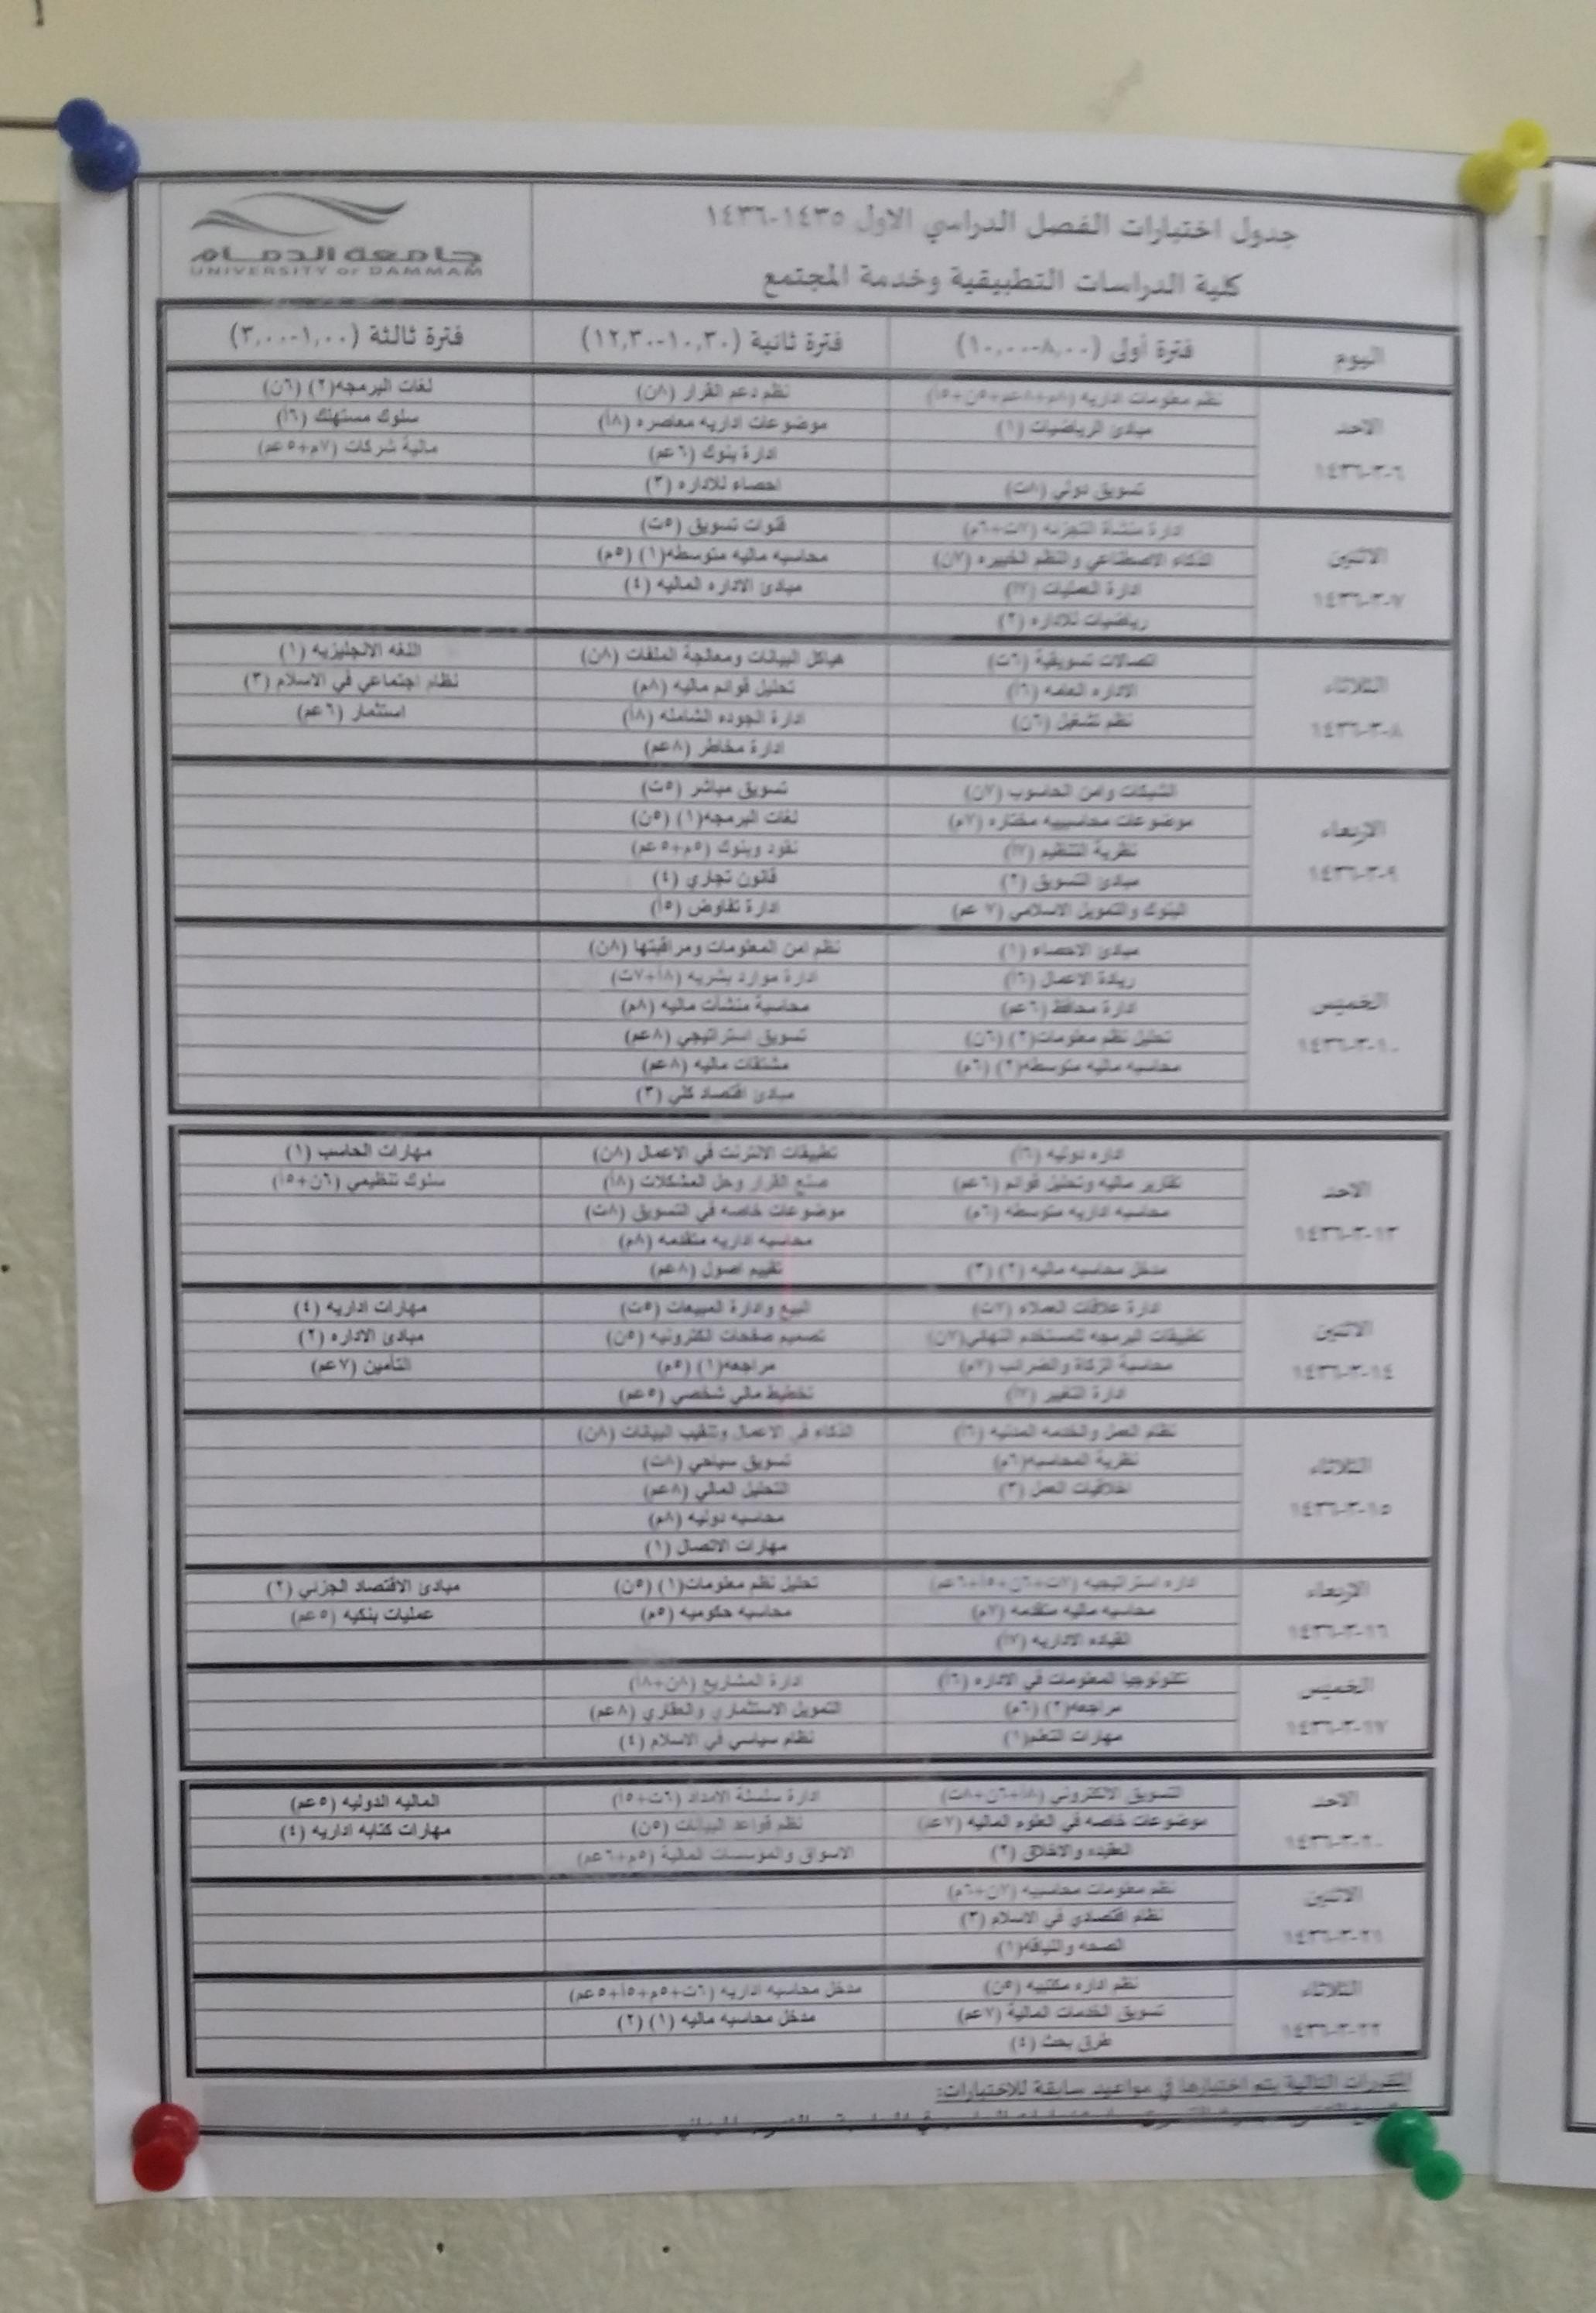 جدول اختبارات الفصل الدراسي الاول ١٤٣٥-١٤٣٦
جامعة الدمام
UNIVERSITY OF DAMMAM
كلية الدراسات التطبيقية وخدمة المجتمع
اليوم فترة أولى (٨,٠٠-١٠,٠٠) فترة ثانية (١٠,٣٠-١٢,٣٠) فترة ثالثة (١,٠٠-٣,٠٠)
الاحد
٦-٣-١٤٣٦
نظم معلومات اداريه (٨م+٨عم+٥ن+٥أ) نظم دعم القرار (٨ن) لغات البرمجه(٢) (٦ن)
مبادئ الرياضيات (١) موضوعات اداريه معاصره (٨أ) سلوك مستهلك (٦أ)
ادارة بنوك (٦عم) مالية شركات (٧م+٥عم)
تسويق دولي (٨ت) احصاء للاداره (٣)
الاثنين
٧-٣-١٤٣٦
ادارة منشأة التجزئه (٧ت+٦م) قنوات تسويق (٥ت)
الذكاء الاصطناعي والنظم الخبيره (٧ن) محاسبه ماليه متوسطه(١) (٥م)
ادارة العمليات (٧أ) مبادئ الاداره الماليه (٤)
رياضيات للاداره (٢)
الثلاثاء
٨-٣-١٤٣٦
اتصالات تسويقية (٦ت) هياكل البيانات ومعالجة الملفات (٨ن) اللغه الانجليزيه (١)
الاداره العامه (٦أ) تحليل قوائم ماليه (٨م) نظام اجتماعي في الاسلام (٣)
نظم تشغيل (٦ن) ادارة الجوده الشامله (٨أ) استثمار (٦عم)
ادارة مخاطر (٨عم)
الاربعاء
٩-٣-١٤٣٦
الشبكات وامن الحاسوب (٧ن) تسويق مباشر (٥ت)
موضوعات محاسبيه مختاره (٧م) لغات البرمجه(١) (٥ن)
نظرية التنظيم (٧أ) نقود وبنوك (٥م+٥عم)
مبادئ التسويق (٢) قانون تجاري (٤)
البنوك والتمويل الاسلامي (٧ عم) ادارة تفاوض (٥أ)
الخميس
١٠-٣-١٤٣٦
مبادئ الاحصاء (١) نظم امن المعلومات ومراقبتها (٨ن)
ريادة الاعمال (٦أ) ادارة موارد بشريه (٨أ+٧ت)
ادارة محافظ (٦عم) محاسبة منشآت ماليه (٨م)
تحليل نظم معلومات(٢) (٦ن) تسويق استراتيجي (٨عم)
محاسبه ماليه متوسطه(٢) (٦م) مشتقات ماليه (٨عم)
مبادئ اقتصاد كلي (٣)
الاحد
١٣-٣-١٤٣٦
اداره دوليه (٦أ) تطبيقات الانترنت في الاعمال (٨ن) مهارات الحاسب (١)
تقارير ماليه وتحليل قوائم (٦عم) صنع القرار وحل المشكلات (٨أ) سلوك تنظيمي (٦ن+٥أ)
محاسبه اداريه متوسطه (٦م) موضوعات خاصه في التسويق (٨ت)
محاسبه اداريه متقدمه (٨م)
مدخل محاسبه ماليه (٢) (٣) تقييم اصول (٨عم)
الاثنين
١٤-٣-١٤٣٦
ادارة علاقات العملاء (٧ت) البيع وادارة المبيعات (٥ت) مهارات اداريه (٤)
تطبيقات البرمجه للمستخدم النهائي(٧ن) تصميم صفحات الكترونيه (٥ن) مبادئ الاداره (٢)
محاسبة الزكاة والضرائب (٧م) مراجعه(١) (٥م) التأمين (٧عم)
ادارة التغيير (٧أ) تخطيط مالي شخصي (٥عم)
الثلاثاء
١٥-٣-١٤٣٦
نظام العمل والخدمه المدنيه (٦أ) الذكاء في الاعمال وتنقيب البيانات (٨ن)
نظرية المحاسبه(٦م) تسويق سياحي (٨ت)
اخلاقيات العمل (٣) التحليل المالي (٨عم)
محاسبه دوليه (٨م)
مهارات الاتصال (١)
الاربعاء
١٦-٣-١٤٣٦
اداره استراتيجيه (٧ت+٦ن+٥أ+٦عم) تحليل نظم معلومات(١) (٥ن) مبادئ الاقتصاد الجزئي (٢)
محاسبه ماليه متقدمه (٧م) محاسبه حكوميه (٥م) عمليات بنكيه (٥عم)
القياده الاداريه (٧أ)
الخميس
١٧-٣-١٤٣٦
تكنولوجيا المعلومات في الاداره (٦أ) ادارة المشاريع (٨ن+٨أ)
مراجعه(٢) (٦م) التمويل الاستثماري والعقاري (٨عم)
مهارات التعلم(١) نظام سياسي في الاسلام (٤)
الاحد
٢٠-٣-١٤٣٦
التسويق الالكتروني (٨أ+٦ن+٨ت) ادارة سلسلة الامداد (٦ت+٥أ) الماليه الدوليه (٥عم)
موضوعات خاصه في العلوم الماليه (٧عم) نظم قواعد البيانات (٥ن) مهارات كتابه اداريه (٤)
العقيده والاخلاق (٢) الاسواق والمؤسسات المالية (٥م+٦عم)
الاثنين
٢١-٣-١٤٣٦
نظم معلومات محاسبيه (٧ن+٦م)
نظام اقتصادي في الاسلام (٣)
الصحه واللياقه(١)
الثلاثاء
٢٢-٣-١٤٣٦
نظم اداره مكتبيه (٥ن) مدخل محاسبه اداريه (٦ت+٥م+٥أ+٥عم)
تسويق الخدمات المالية (٧عم) مدخل محاسبه ماليه (١) (٢)
طرق بحث (٤)
المقررات التالية يتم اختبارها في مواعيد سابقة للاختبارات: